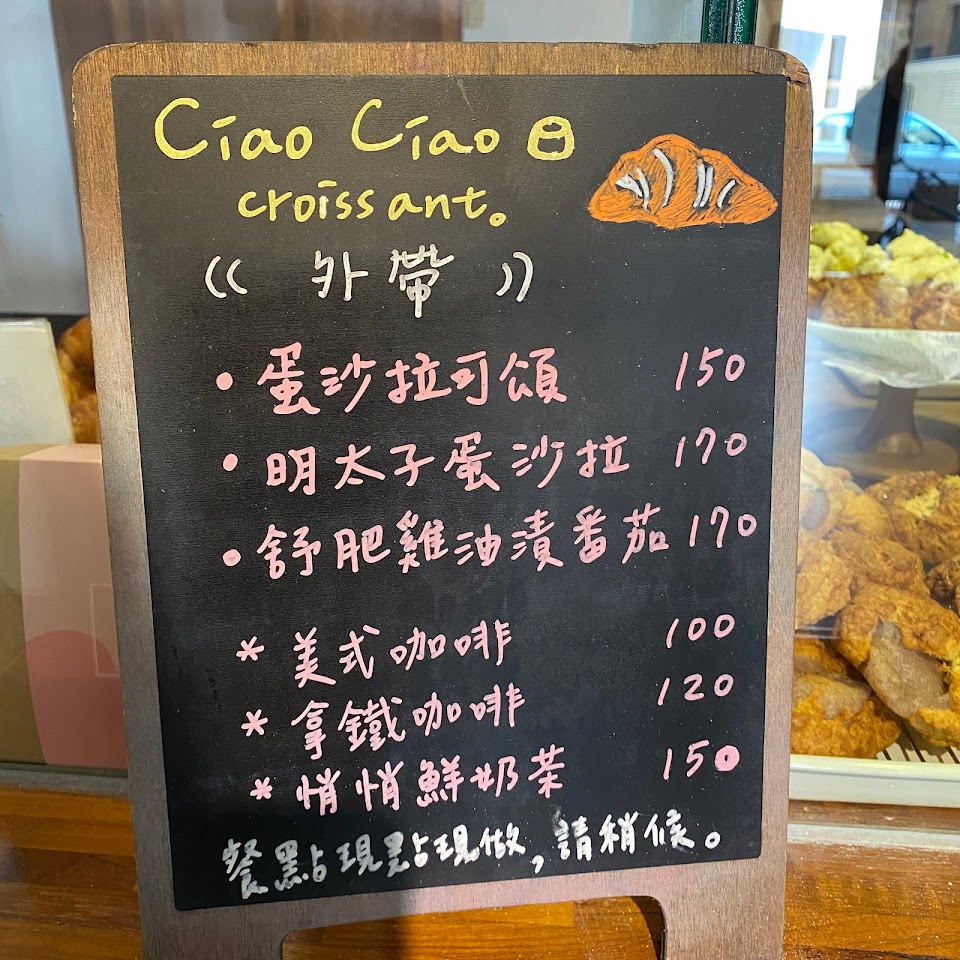 Ciao Ciao
croissant。
(( 外帶 ))
• 蛋沙拉可頌 150
• 明太子蛋沙拉 170
• 舒肥雞油漬番茄 170
* 美式咖啡 100
* 拿鐵咖啡 120
* 悄悄鮮奶茶 150
餐點現點現做,請稍候。